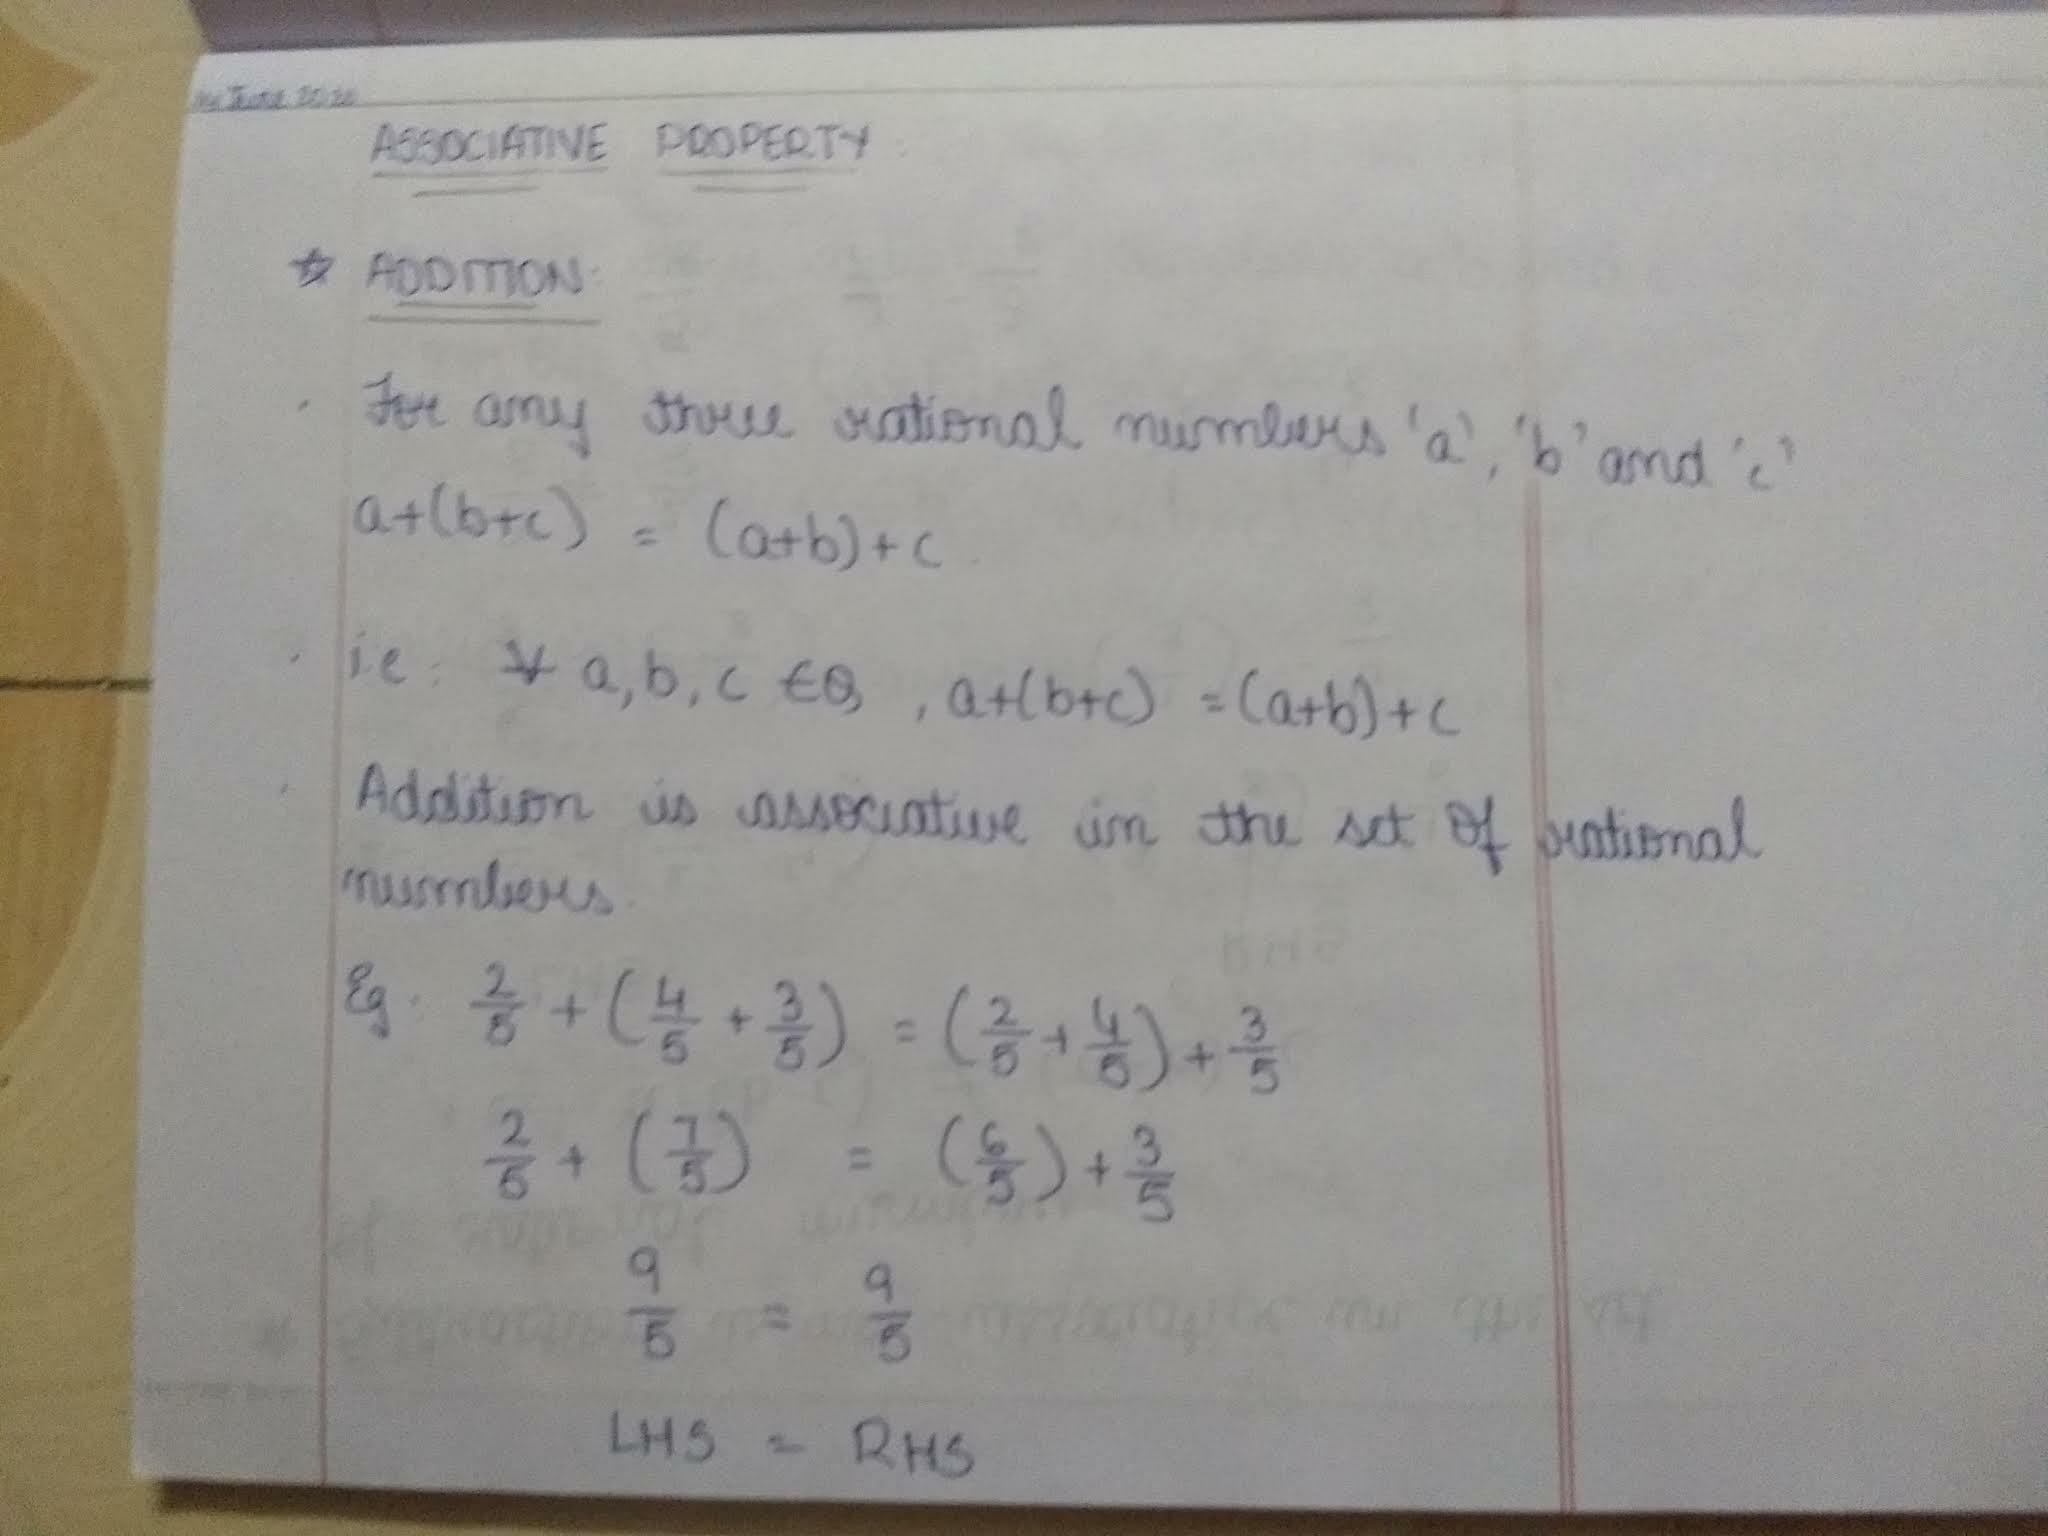 June 2020
ASSOCIATIVE PROPERTY
☆ ADDITION
· For any three rational numbers 'a', 'b' and 'c'
a+(b+c) = (a+b)+c
· i.e. ∀ a,b,c ∈Q, a+(b+c) =(a+b)+c
· Addition is associative in the set of rational
numbers.
Eg. 2/5 + (4/5 + 3/5) = (2/5 + 4/5) + 3/5
2/5 + (7/5) = (6/5) + 3/5
9/5 = 9/5
LHS = RHS